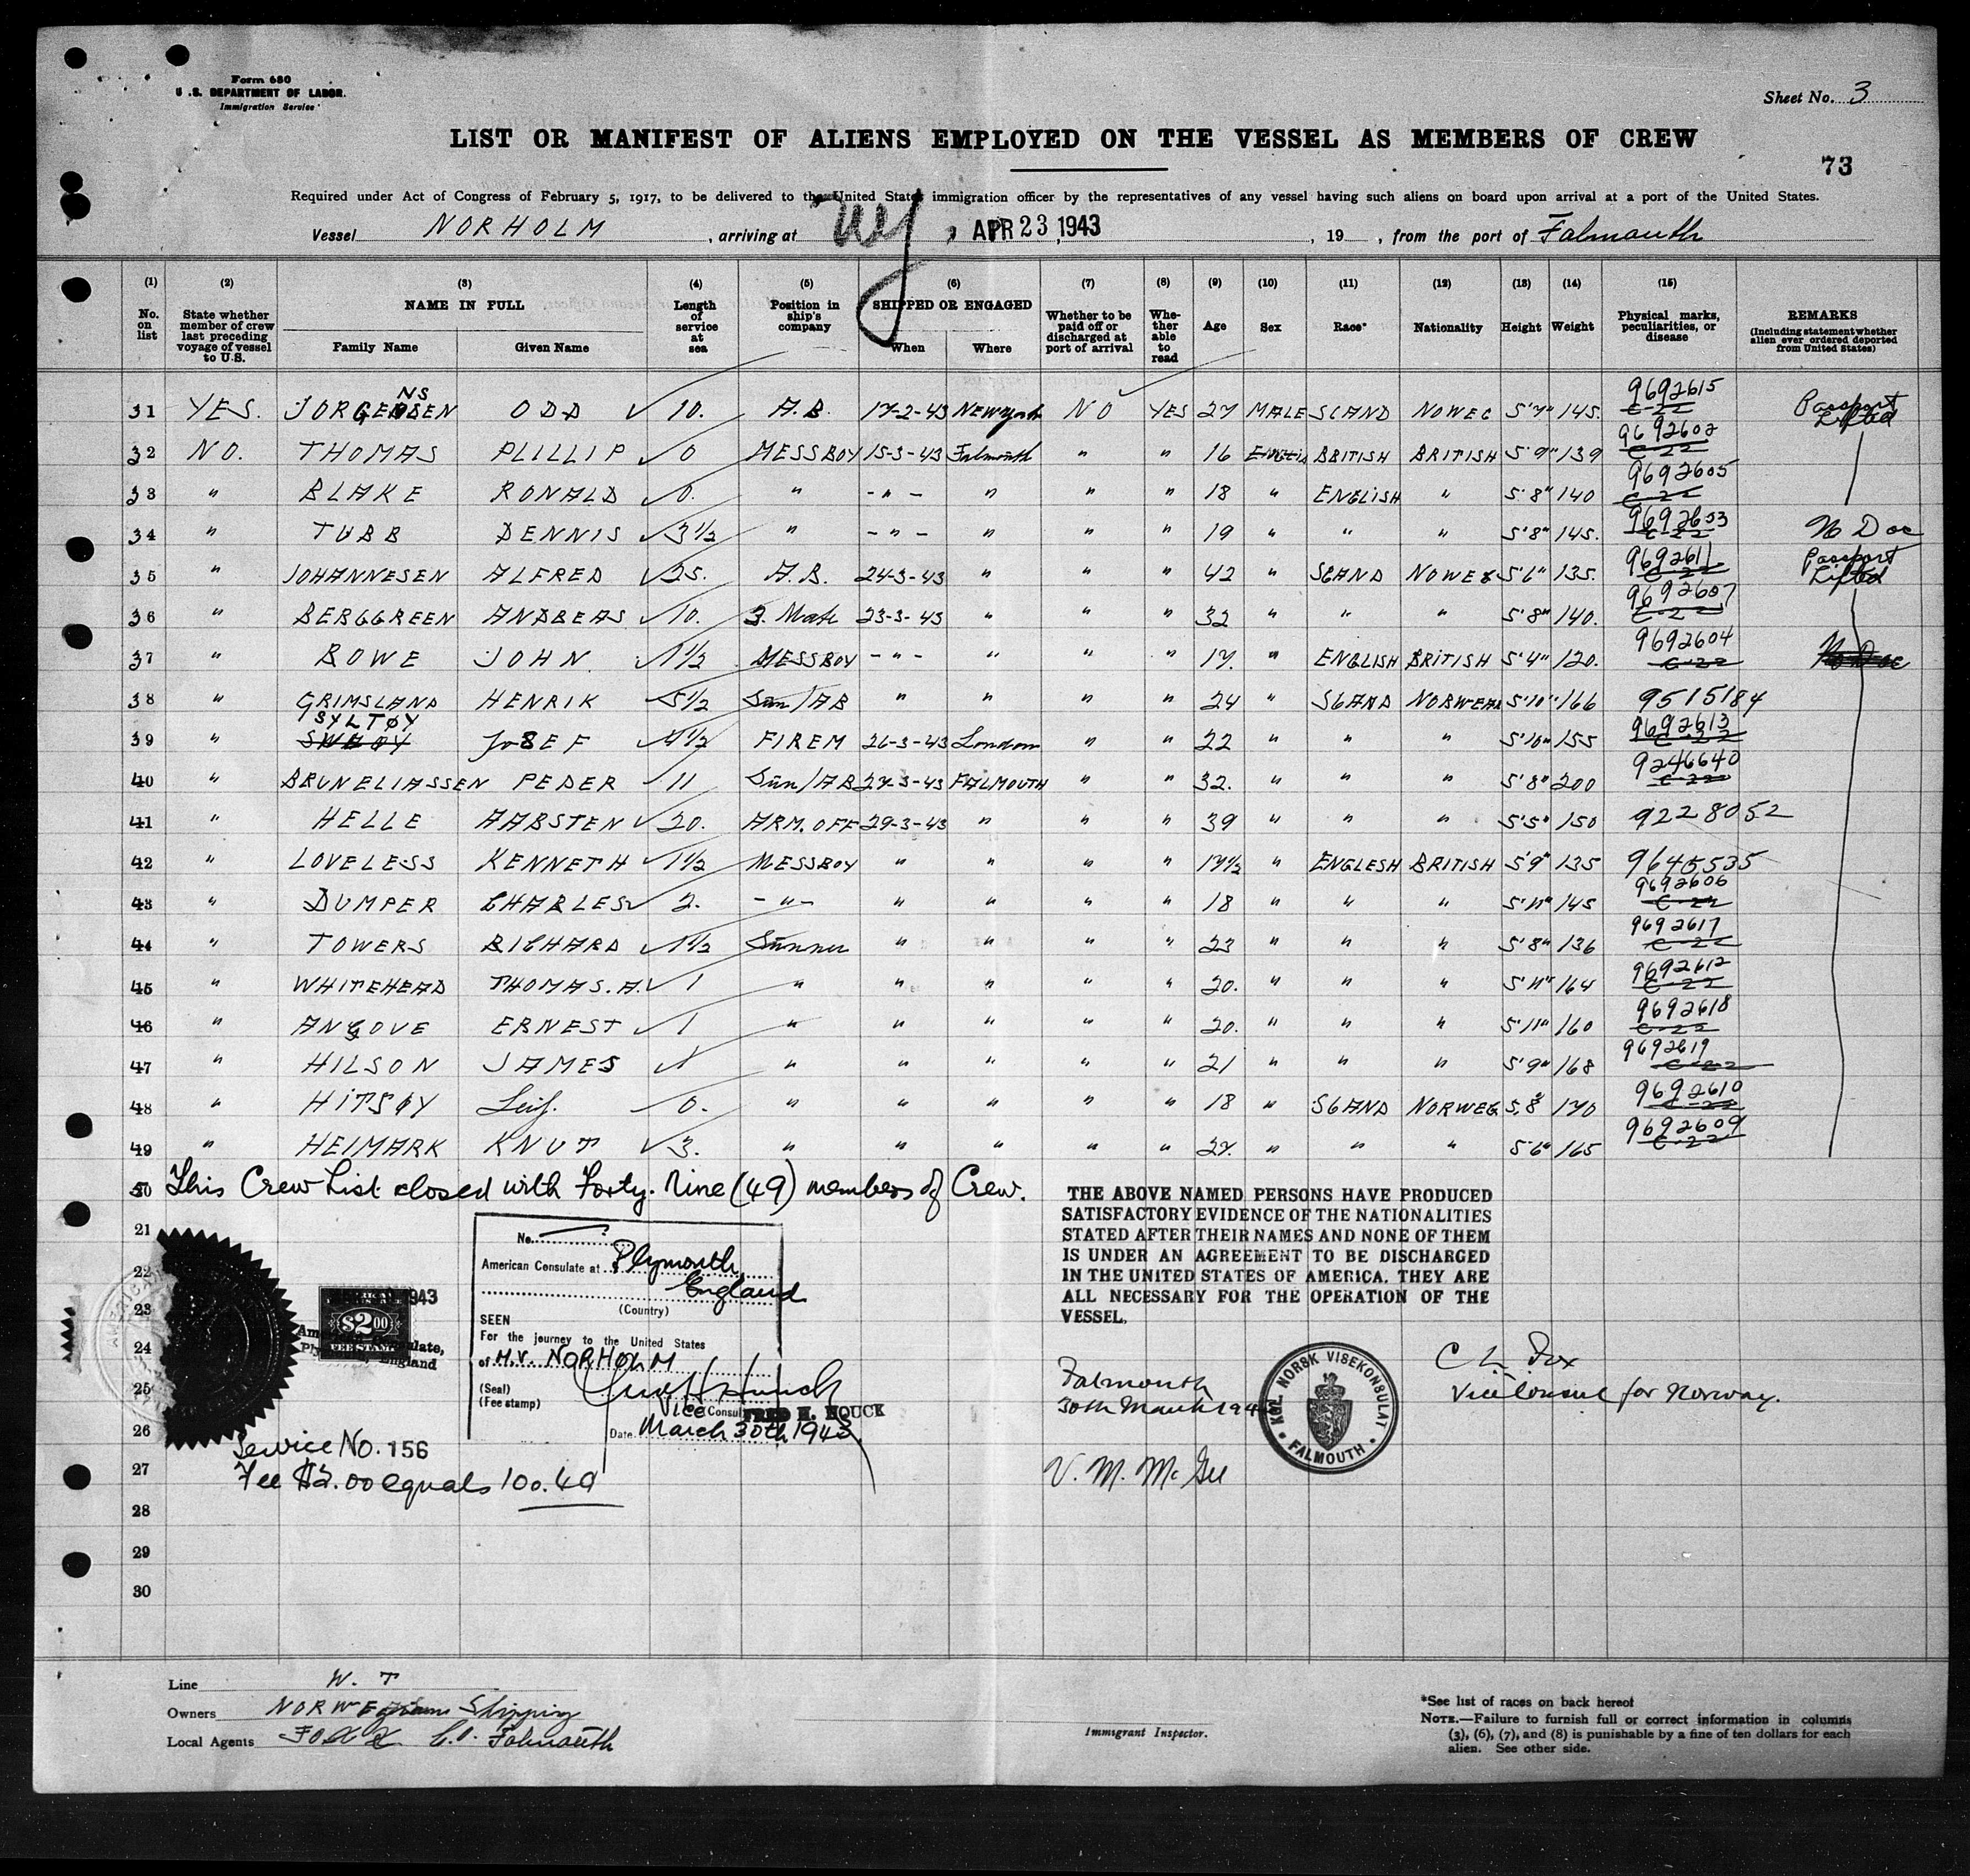 Form 680
U.S. DEPARTMENT OF LABOR.
Immigration Service
Sheet No. 3
LIST OR MANIFEST OF ALIENS EMPLOYED ON THE VESSEL AS MEMBERS OF CREW
73
Required under Act of Congress of February 5, 1917, to be delivered to the United States immigration officer by the representatives of any vessel having such aliens on board upon arrival at a port of the United States.
Vessel NORHOLM, arriving at NY, APR 23, 1943, 19 , from the port of Falmouth
(1) (2) (3) (4) (5) (6) (7) (8) (9) (10) (11) (12) (13) (14) (15)
No. on list | State whether member of crew last preceding voyage of vessel to U.S. | NAME IN FULL Family Name Given Name | Length of service at sea | Position in ship's company | SHIPPED OR ENGAGED When Where | Whether to be paid off or discharged at port of arrival | Whether able to read | Age | Sex | Race* | Nationality | Height | Weight | Physical marks, peculiarities, or disease | REMARKS (Including statement whether alien ever ordered deported from United States)
31 YES. JORGENSEN ODD 10. A.B. 17-2-43 New York NO YES 27 MALE SCAND NOWEG 5'7" 145. 9692615 C-22 Passport Lifted
32 NO. THOMAS PLILLIP 0 MESSBOY 15-3-43 Falmouth " " 16 BRITISH BRITISH 5'9" 139 9692602 C-22
33 " BLAKE RONALD 0. " -"- " " " 18 " ENGLISH " 5'8" 140 9692605 C-22
34 " TUBB DENNIS 3 1/2 " -"- " " " 19 " " " 5'8" 145. 9692603 C-22 No Doc
35 " JOHANNESEN ALFRED 25. A.B. 24-3-43 " " " 42 " SCAND NOWEG 5'6" 135. 9692611 C-22 Passport Lifted
36 " BERGGREEN ANDREAS 10. 3. Mate 23-3-43 " " " 32 " " " 5'8" 140. 9692607 C-22
37 " ROWE JOHN 1 1/2 MESSBOY -"- " " " 17. " ENGLISH BRITISH 5'4" 120. 9692604 C-22 No Doc
38 " GRIMSLAND HENRIK 5 1/2 /AB " " " " 24 " SCAND NORWEG 5'10" 166 9515184
SYLTØY
39 " JOSEF 4 1/2 FIREM 26-3-43 London " " 22 " " " 5'10" 155 9692613 C-22
40 " BRUNELIASSEN PEDER 11 /AB 27-3-43 FALMOUTH " " 32. " " " 5'8" 200 9246640 C-22
41 " HELLE AARSTEN 20. ARM. OFF 29-3-43 " " " 39 " " " 5'5" 150 9228052
42 " LOVELESS KENNETH 1 1/2 MESSBOY " " " " 17 1/2 " ENGLESH BRITISH 5'9" 135 9645535
43 " DUMPER CHARLES 2. -"- " " " " 18 " " " 5'11" 145 9692606 C-22
44 " TOWERS RICHARD 1 1/2 " " " " 23 " " " 5'8" 136 9692617 C-22
45 " WHITEHEAD THOMAS. A. 1 " " " " " 20. " " " 5'11" 164 9692612 C-22
46 " ANGOVE ERNEST 1 " " " " " 20. " " " 5'11" 160 9692618 C-22
47 " HILSON JAMES 1 " " " " " 21 " " " 5'9" 168 9692619 C-22
48 " HITSØY Leif. 0. " " " " " 18 " SCAND NORWEG 5.8" 170 9692610 C-22
49 " HEIMARK KNUT 3. " " " " " 27. " " " 5'6" 165 9692609 C-22
50 This Crew List closed with Forty-Nine (49) members of Crew.
THE ABOVE NAMED PERSONS HAVE PRODUCED
SATISFACTORY EVIDENCE OF THE NATIONALITIES
STATED AFTER THEIR NAMES AND NONE OF THEM
IS UNDER AN AGREEMENT TO BE DISCHARGED
IN THE UNITED STATES OF AMERICA. THEY ARE
ALL NECESSARY FOR THE OPERATION OF THE
VESSEL.
21
22
23
24
25
26
27
28
29
30
No.
American Consulate at Plymouth,
England
(Country)
SEEN
For the journey to the United States
of M.V. NORHOLM
(Seal)
(Fee stamp)
Vice Consul
FRED H. HOUCK
Date March 30th 1943
1943
$2.00
FEE STAMP
American Consulate,
Plymouth, England
Service No. 156
Fee $2.00 equals 10s. 4d
Falmouth
30th March 194
KGL. NORSK VISEKONSULAT
FALMOUTH
C L Fox
Vice Consul for Norway.
V. M. McGee
Line W. T
Owners NORWEgian Shipping
Local Agents FOX Co. Falmouth
Immigrant Inspector.
*See list of races on back hereof
NOTE.—Failure to furnish full or correct information in columns
(3), (6), (7), and (8) is punishable by a fine of ten dollars for each
alien. See other side.